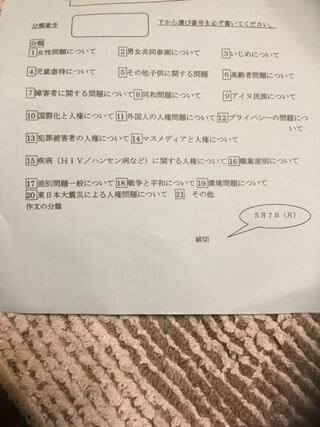 分類番号　下から選び番号を必ず書いてください。
分類
1女性問題について　2男女共同参画について　3いじめについて
4児童虐待について　5その他子供に関する問題　6高齢者問題について
7障害者に関する問題について　8同和問題について　9アイヌ民族について
10国際化と人権について　11外国人の人権問題について　12プライバシーの問題につ
いて
13犯罪被害者の人権について　14マスメディアと人権について
15疾病（ＨＩＶ／ハンセン病など）に関する人権について　16職業差別について
17差別問題一般について　18戦争と平和について　19環境問題について
20東日本大震災による人権問題について　21　その他
作文の分類
５月７日（月）
締切